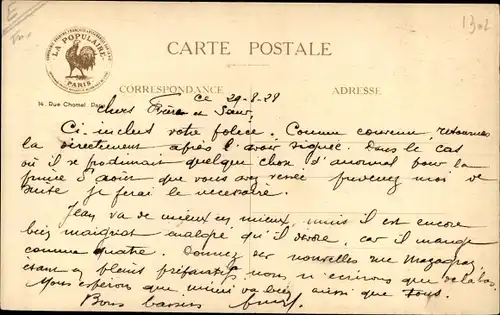 E
1302
LA POPULAIRE
PARIS
CARTE POSTALE
CORRESPONDANCE
ADRESSE
14, Rue Chomel, Paris
Ce 29-8-28
Chers Frère et Sœur,
Ci-inclus votre police. Comme convenu, retournez
la directement après l'avoir signée. Dans le cas
où il se produirait quelque chose d'anormal pour la
prime d'août que vous avez versée prévenez moi de
suite je ferai le nécessaire.
Jean va de mieux en mieux, mais il est encore
bien maigriot malgré qu'il dévore, car il mange
comme quatre. Donnez des nouvelles rue Mazagran
étant en pleins préparatifs nous n'écrirons que de là-bas.
Nous espérons que mimi va bien ainsi que tous.
Bons baisers